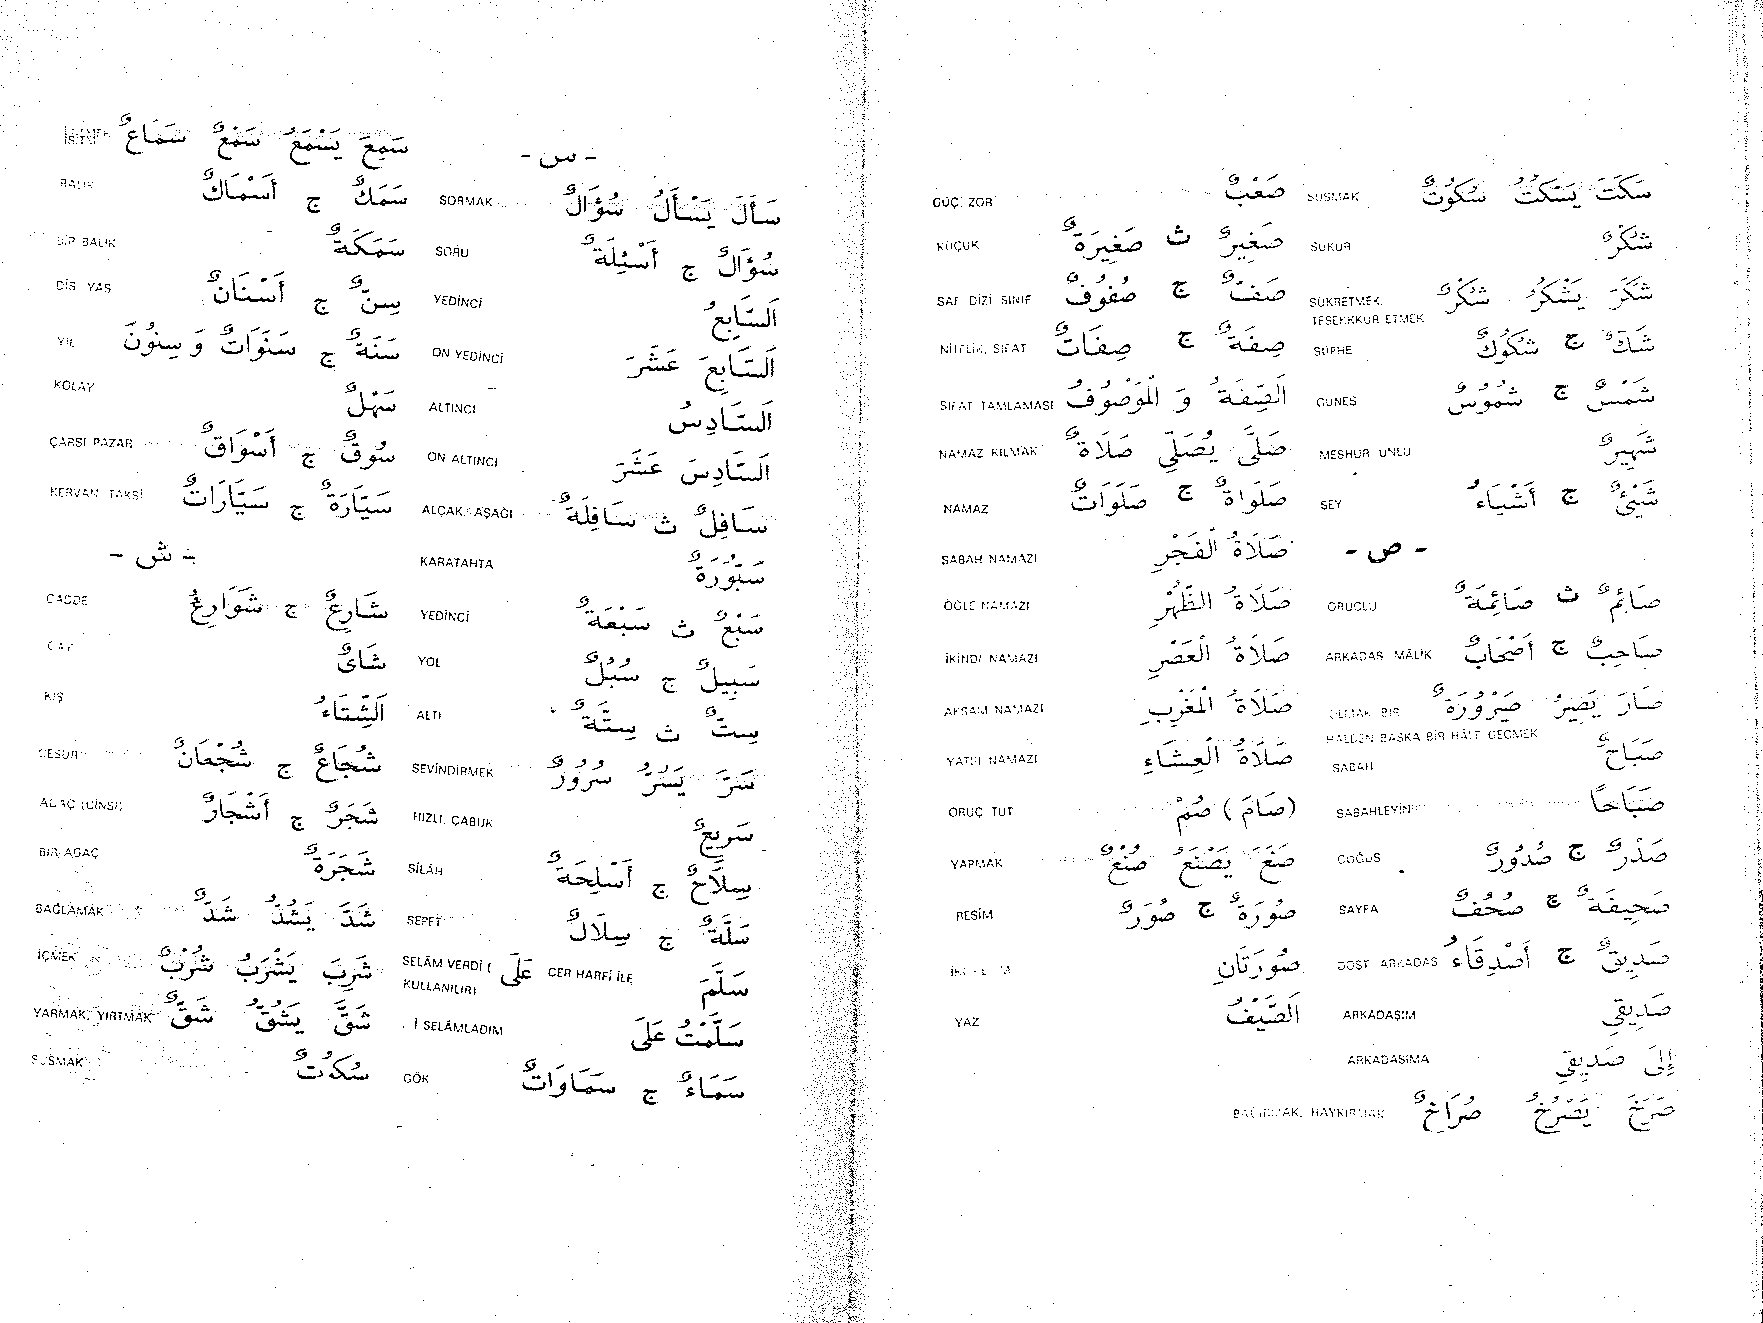 - س -
سَأَلَ يَسْأَلُ سُؤَالٌ SORMAK
سُؤَالٌ ج أَسْئِلَةٌ SORU
اَلسَّابِعُ YEDİNCİ
اَلسَّابِعَ عَشَرَ ON YEDİNCİ
اَلسَّادِسُ ALTINCI
اَلسَّادِسَ عَشَرَ ON ALTINCI
سَافِلٌ ث سَافِلَةٌ ALÇAK, AŞAĞI
سَبُّورَةٌ KARATAHTA
سَبْعٌ ث سَبْعَةٌ YEDİNCİ
سَبِيلٌ ج سُبُلٌ YOL
سِتٌّ ث سِتَّةٌ ALTI
سَرَّ يَسُرُّ سُرُورٌ SEVİNDİRMEK
سَرِيعٌ HIZLI, ÇABUK
سِلَاحٌ ج أَسْلِحَةٌ SİLÂH
سَلَّةٌ ج سِلَالٌ SEPET
سَلَّمَ CER HARFİ İLE عَلَى SELÂM VERDİ (
KULLANILIR)
سَلَّمْتُ عَلَى . İ SELÂMLADIM
سَمَاءٌ ج سَمَاوَاتٌ GÖK
سَمِعَ يَسْمَعُ سَمْعٌ سَمَاعٌ
سَمَكٌ ج أَسْمَاكٌ BALIK
سَمَكَةٌ BİR BALIK
سِنٌّ ج أَسْنَانٌ DİŞ YAŞ
سَنَةٌ ج سَنَوَاتٌ وَ سِنُونَ YIL
سَهْلٌ KOLAY
سُوقٌ ج أَسْوَاقٌ ÇARŞI PAZAR
سَيَّارَةٌ ج سَيَّارَاتٌ KERVAN TAKSİ
- ش -
شَارِعٌ ج شَوَارِعُ CADDE
شَاىٌ ÇAY
اَلشِّتَاءُ KIŞ
شُجَاعٌ ج شُجْعَانٌ CESUR
شَجَرٌ ج أَشْجَارٌ AĞAÇ (CİNSİ)
شَجَرَةٌ BİR AĞAÇ
شَدَّ يَشُدُّ شَدٌّ BAĞLAMAK
شَرِبَ يَشْرَبُ شُرْبٌ İÇMEK
شَقَّ يَشُقُّ شَقٌّ YARMAK, YIRTMAK
سُكُوتٌ SUSMAK
سَكَتَ يَسْكُتُ سُكُوتٌ SUSMAK
شُكْرٌ ŞÜKÜR
شَكَرَ يَشْكُرُ شُكْرٌ ŞÜKRETMEK,
TEŞEKKÜR ETMEK
شَكٌّ ج شُكُوكٌ ŞÜPHE
شَمْسٌ ج شُمُوسٌ GÜNEŞ
شَهِيرٌ MEŞHUR ÜNLÜ
شَيْئٌ ج أَشْيَاءُ ŞEY
- ص -
صَائِمٌ ث صَائِمَةٌ ORUÇLU
صَاحِبٌ ج أَصْحَابٌ ARKADAŞ MÂLİK
صَارَ يَصِيرُ صَيْرُورَةٌ OLMAK BİR
HALDEN BAŞKA BİR HÂLE GEÇMEK
صَبَاحٌ SABAH
صَبَاحًا SABAHLEYİN
صَدْرٌ ج صُدُورٌ GÖĞÜS
صَحِيفَةٌ ج صُحُفٌ SAYFA
صَدِيقٌ ج أَصْدِقَاءُ DOST ARKADAŞ
صَدِيقِي ARKADAŞIM
إِلَى صَدِيقِي ARKADAŞIMA
صَرَخَ يَصْرُخُ صُرَاخٌ BAĞIRMAK, HAYKIRMAK
صَعْبٌ GÜÇ, ZOR
صَغِيرٌ ث صَغِيرَةٌ KÜÇÜK
صَفٌّ ج صُفُوفٌ SAF DİZİ SINIF
صِفَةٌ ج صِفَاتٌ NİTELİK, SIFAT
اَلصِّفَةُ وَ الْمَوْصُوفُ SIFAT TAMLAMASI
صَلَّى يُصَلِّي صَلَاةٌ NAMAZ KILMAK
صَلَواةٌ ج صَلَوَاتٌ NAMAZ
صَلَاةُ الْفَجْرِ SABAH NAMAZI
صَلَاةُ الظُّهْرِ ÖĞLE NAMAZI
صَلَاةُ الْعَصْرِ İKİNDİ NAMAZI
صَلَاةُ الْمَغْرِبِ AKŞAM NAMAZI
صَلَاةُ الْعِشَاءِ YATSI NAMAZI
(صَامَ) صُمْ ORUÇ TUT
صَنَعَ يَصْنَعُ صُنْعٌ YAPMAK
صُورَةٌ ج صُوَرٌ RESİM
صُورَتَانِ
اَلصَّيْفُ YAZ